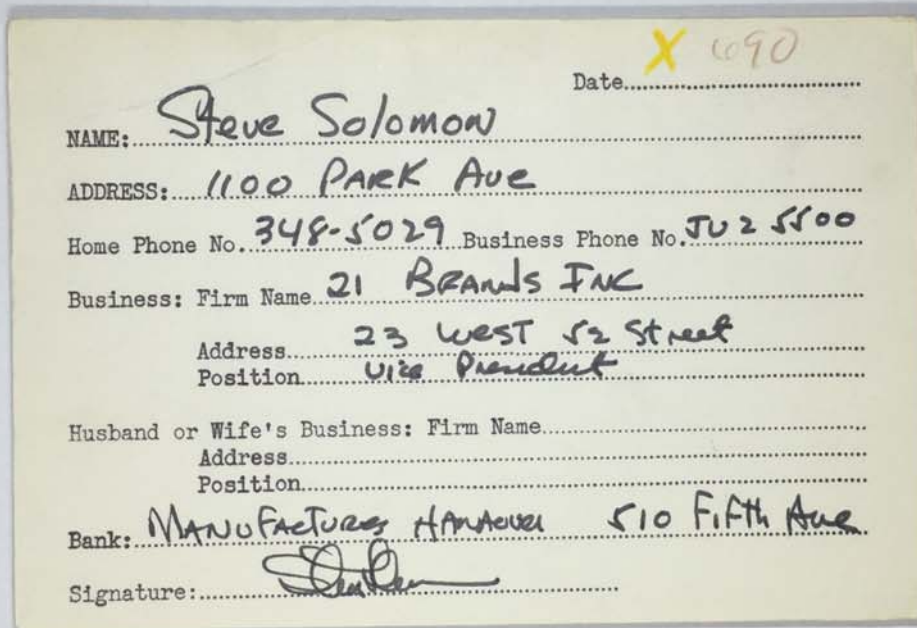 X 690
Date
NAME: Steve Solomon
ADDRESS: 1100 PARK Ave
Home Phone No. 348-5029 Business Phone No. JU 2 5500
Business: Firm Name 21 BRANDS INC
Address 23 WEST 52 Street
Position Vice President
Husband or Wife's Business: Firm Name
Address
Position
Bank: MANUFACTURERS HANOVER 510 FIFTH Ave
Signature: